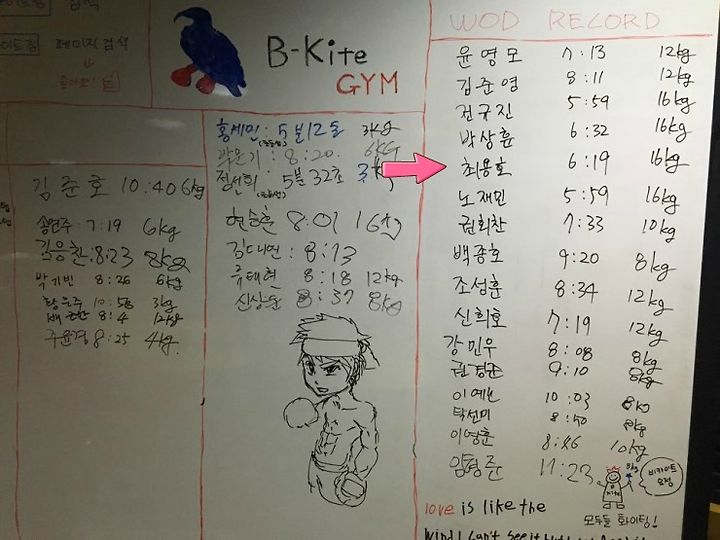 페이지 검색
B-Kite
GYM
WOD RECORD
윤영모 7:13 12kg
김준영 8:11 12kg
전규진 5:59 16kg
박상훈 6:32 16kg
최용호 6:19 16kg
노재민 5:59 16kg
권희찬 7:33 10kg
백종호 9:20 8kg
조성훈 8:34 12kg
신희호 7:19 12kg
강민우 8:08 8kg
권경준 9:10 8kg
이예 10:03 8kg
탁선미 8:50 8kg
이영훈 8:46 10kg
양형준 11:23 8kg
비카이트 요정
모두들 화이팅!
love is like the
wind I can't see it but
홍세민: 5분12초 3kg
박윤기: 8:20 6kg
정선희: 5분 32초 3kg
현승훈 8:01 16kg
김대연: 8:13
류태현 8:18 12kg
신상순 8:37 8kg
김준호 10:40 6kg
송연주: 7:19 6kg
김응찬: 8:23 8kg
박기빈 8:26 6kg
10:58 3kg
8:4 12kg
주윤경 8:25 4kg